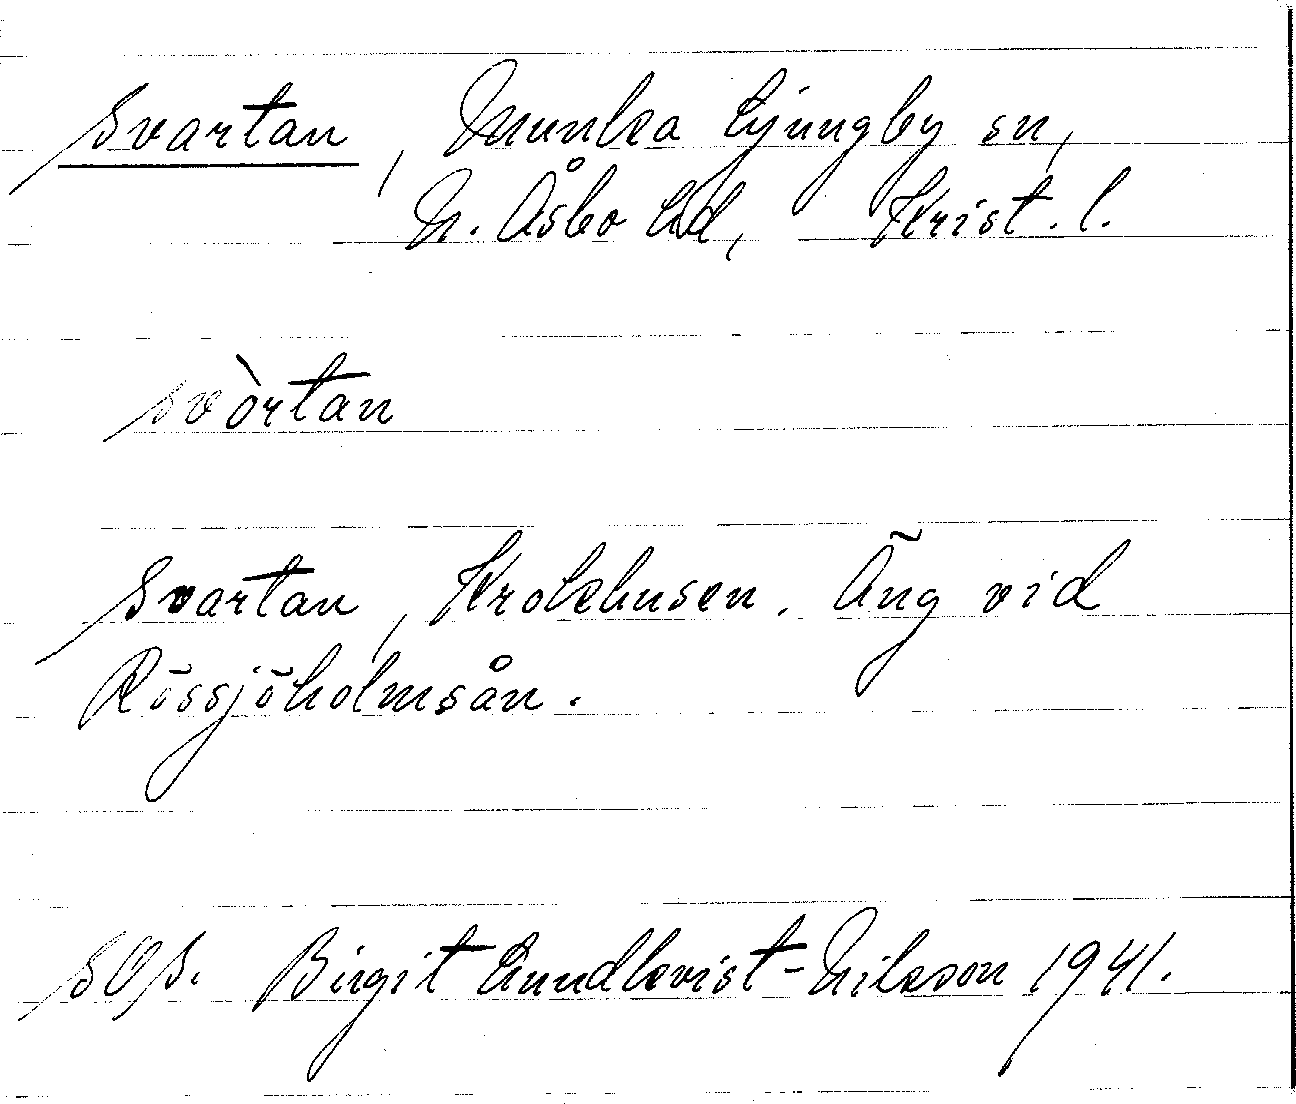 Svartan, Munka Ljungby sn,
N. Åsbo hd, Krist. l.
svòrtan
Svartan, Krokhusen. Äng vid
Rössjöholmsån.
Birgit Lundkvist-Nilsson 1941.